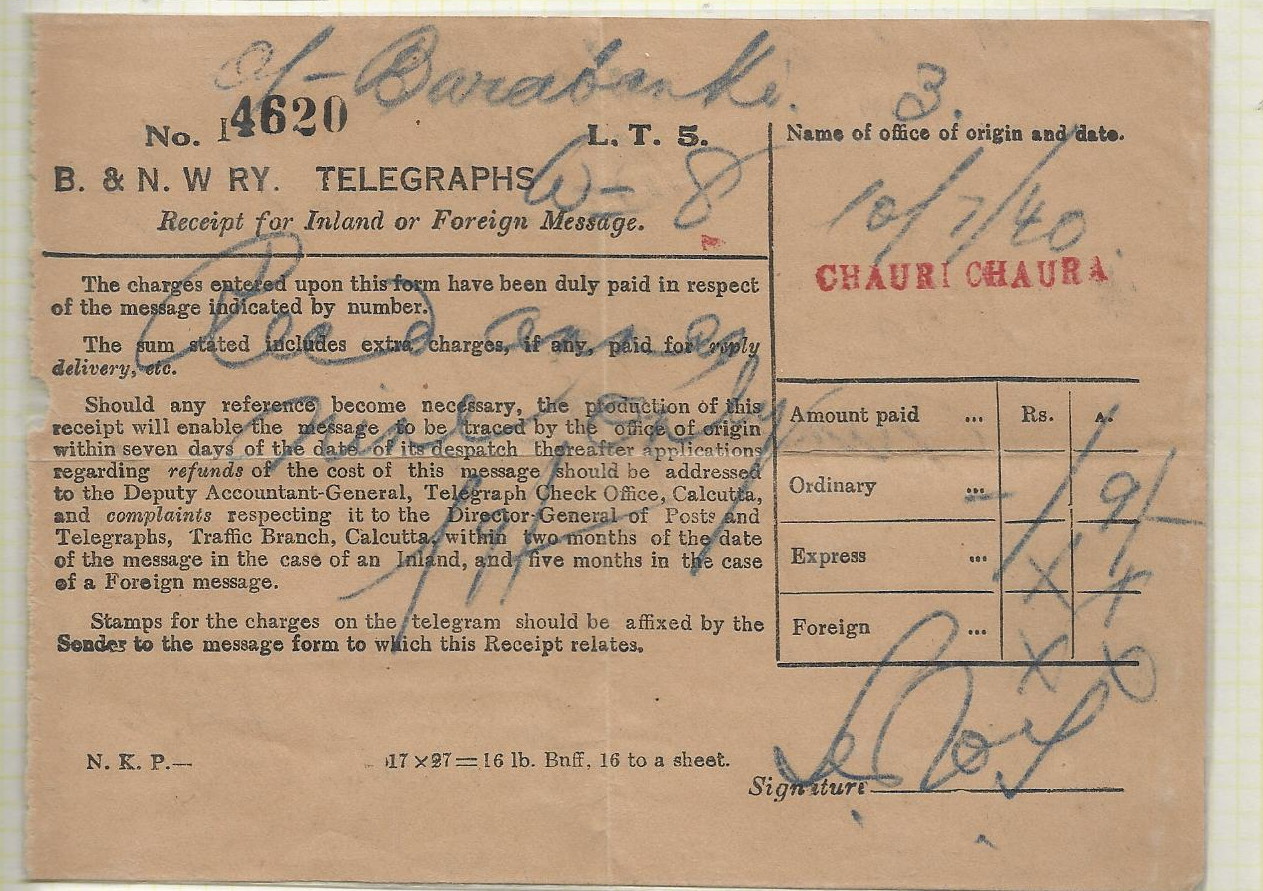 c/- Barabanki. 3.
No. 14620 L. T. 5.
B. & N. W RY. TELEGRAPHS W- 8
Receipt for Inland or Foreign Message.
The charges entered upon this form have been duly paid in respect
of the message indicated by number.
The sum stated includes extra charges, if any, paid for reply
delivery, etc.
Should any reference become necessary, the production of this
receipt will enable the message to be traced by the office of origin
within seven days of the date of its despatch thereafter applications
regarding refunds of the cost of this message should be addressed
to the Deputy Accountant-General, Telegraph Check Office, Calcutta,
and complaints respecting it to the Director-General of Posts and
Telegraphs, Traffic Branch, Calcutta, within two months of the date
of the message in the case of an Inland, and five months in the case
of a Foreign message.
Stamps for the charges on the telegram should be affixed by the
Sender to the message form to which this Receipt relates.
Recd annas
nine only
/9/-
N. K. P.— 17×27=16 lb. Buff, 16 to a sheet.
Name of office of origin and date.
10/7/40
CHAURI CHAURA
Amount paid ... Rs. A.
Ordinary ... - /9/-
Express ... X X
Foreign ... X X
Signature